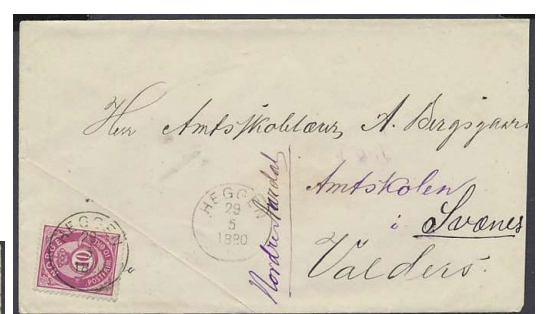 Herr Amtsskolelærer A. Bergsgaard
Amtskolen
i Svænes
Valders.
Nordre Aurdal
HEGGEN
29
5
1890
HEGGEN
NORGE
10
POSTFRIM